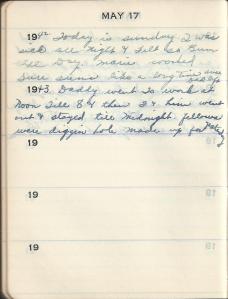 MAY 17
1942 Today is sunday I was
sick all night & felt so bum
all Day. marie worked
Sure seems like a long time since
1943. Daddy went to work at
Noon till 8 & then I & him went
out & stayed till midnight. fellows
were diggin hole made up for
19
19
19